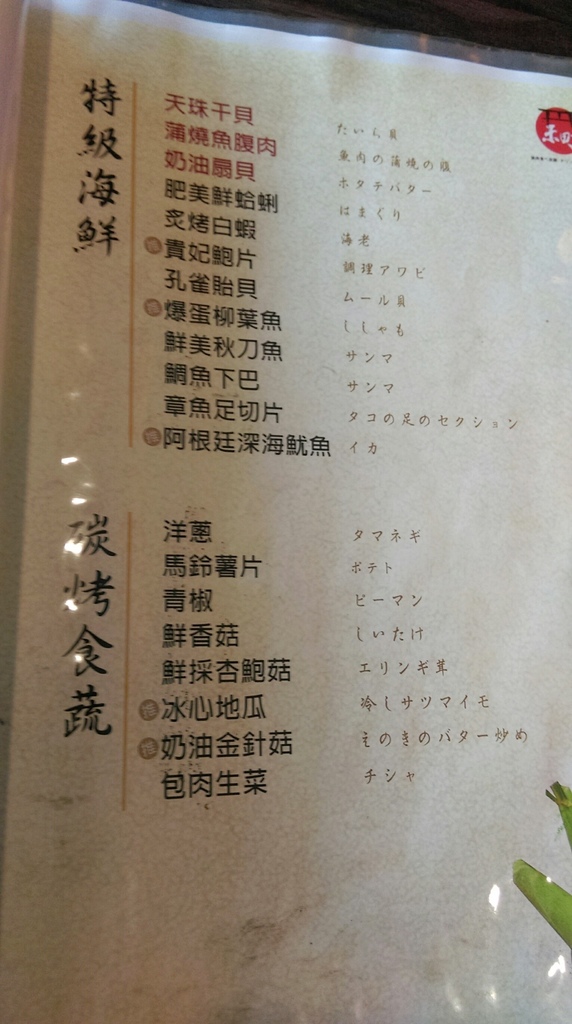 特級海鮮
天珠干貝 たいら貝
蒲燒魚腹肉 魚肉の蒲焼の腹
奶油扇貝 ホタテバター
肥美鮮蛤蜊 はまぐり
炙烤白蝦 海老
貴妃鮑片 調理アワビ
孔雀貽貝 ムール貝
爆蛋柳葉魚 ししゃも
鮮美秋刀魚 サンマ
鯛魚下巴 サンマ
章魚足切片 タコの足のセクション
阿根廷深海魷魚 イカ
碳烤食蔬
洋蔥 タマネギ
馬鈴薯片 ポテト
青椒 ピーマン
鮮香菇 しいたけ
鮮採杏鮑菇 エリンギ茸
冰心地瓜 冷しサツマイモ
奶油金針菇 えのきのバター炒め
包肉生菜 チシャ